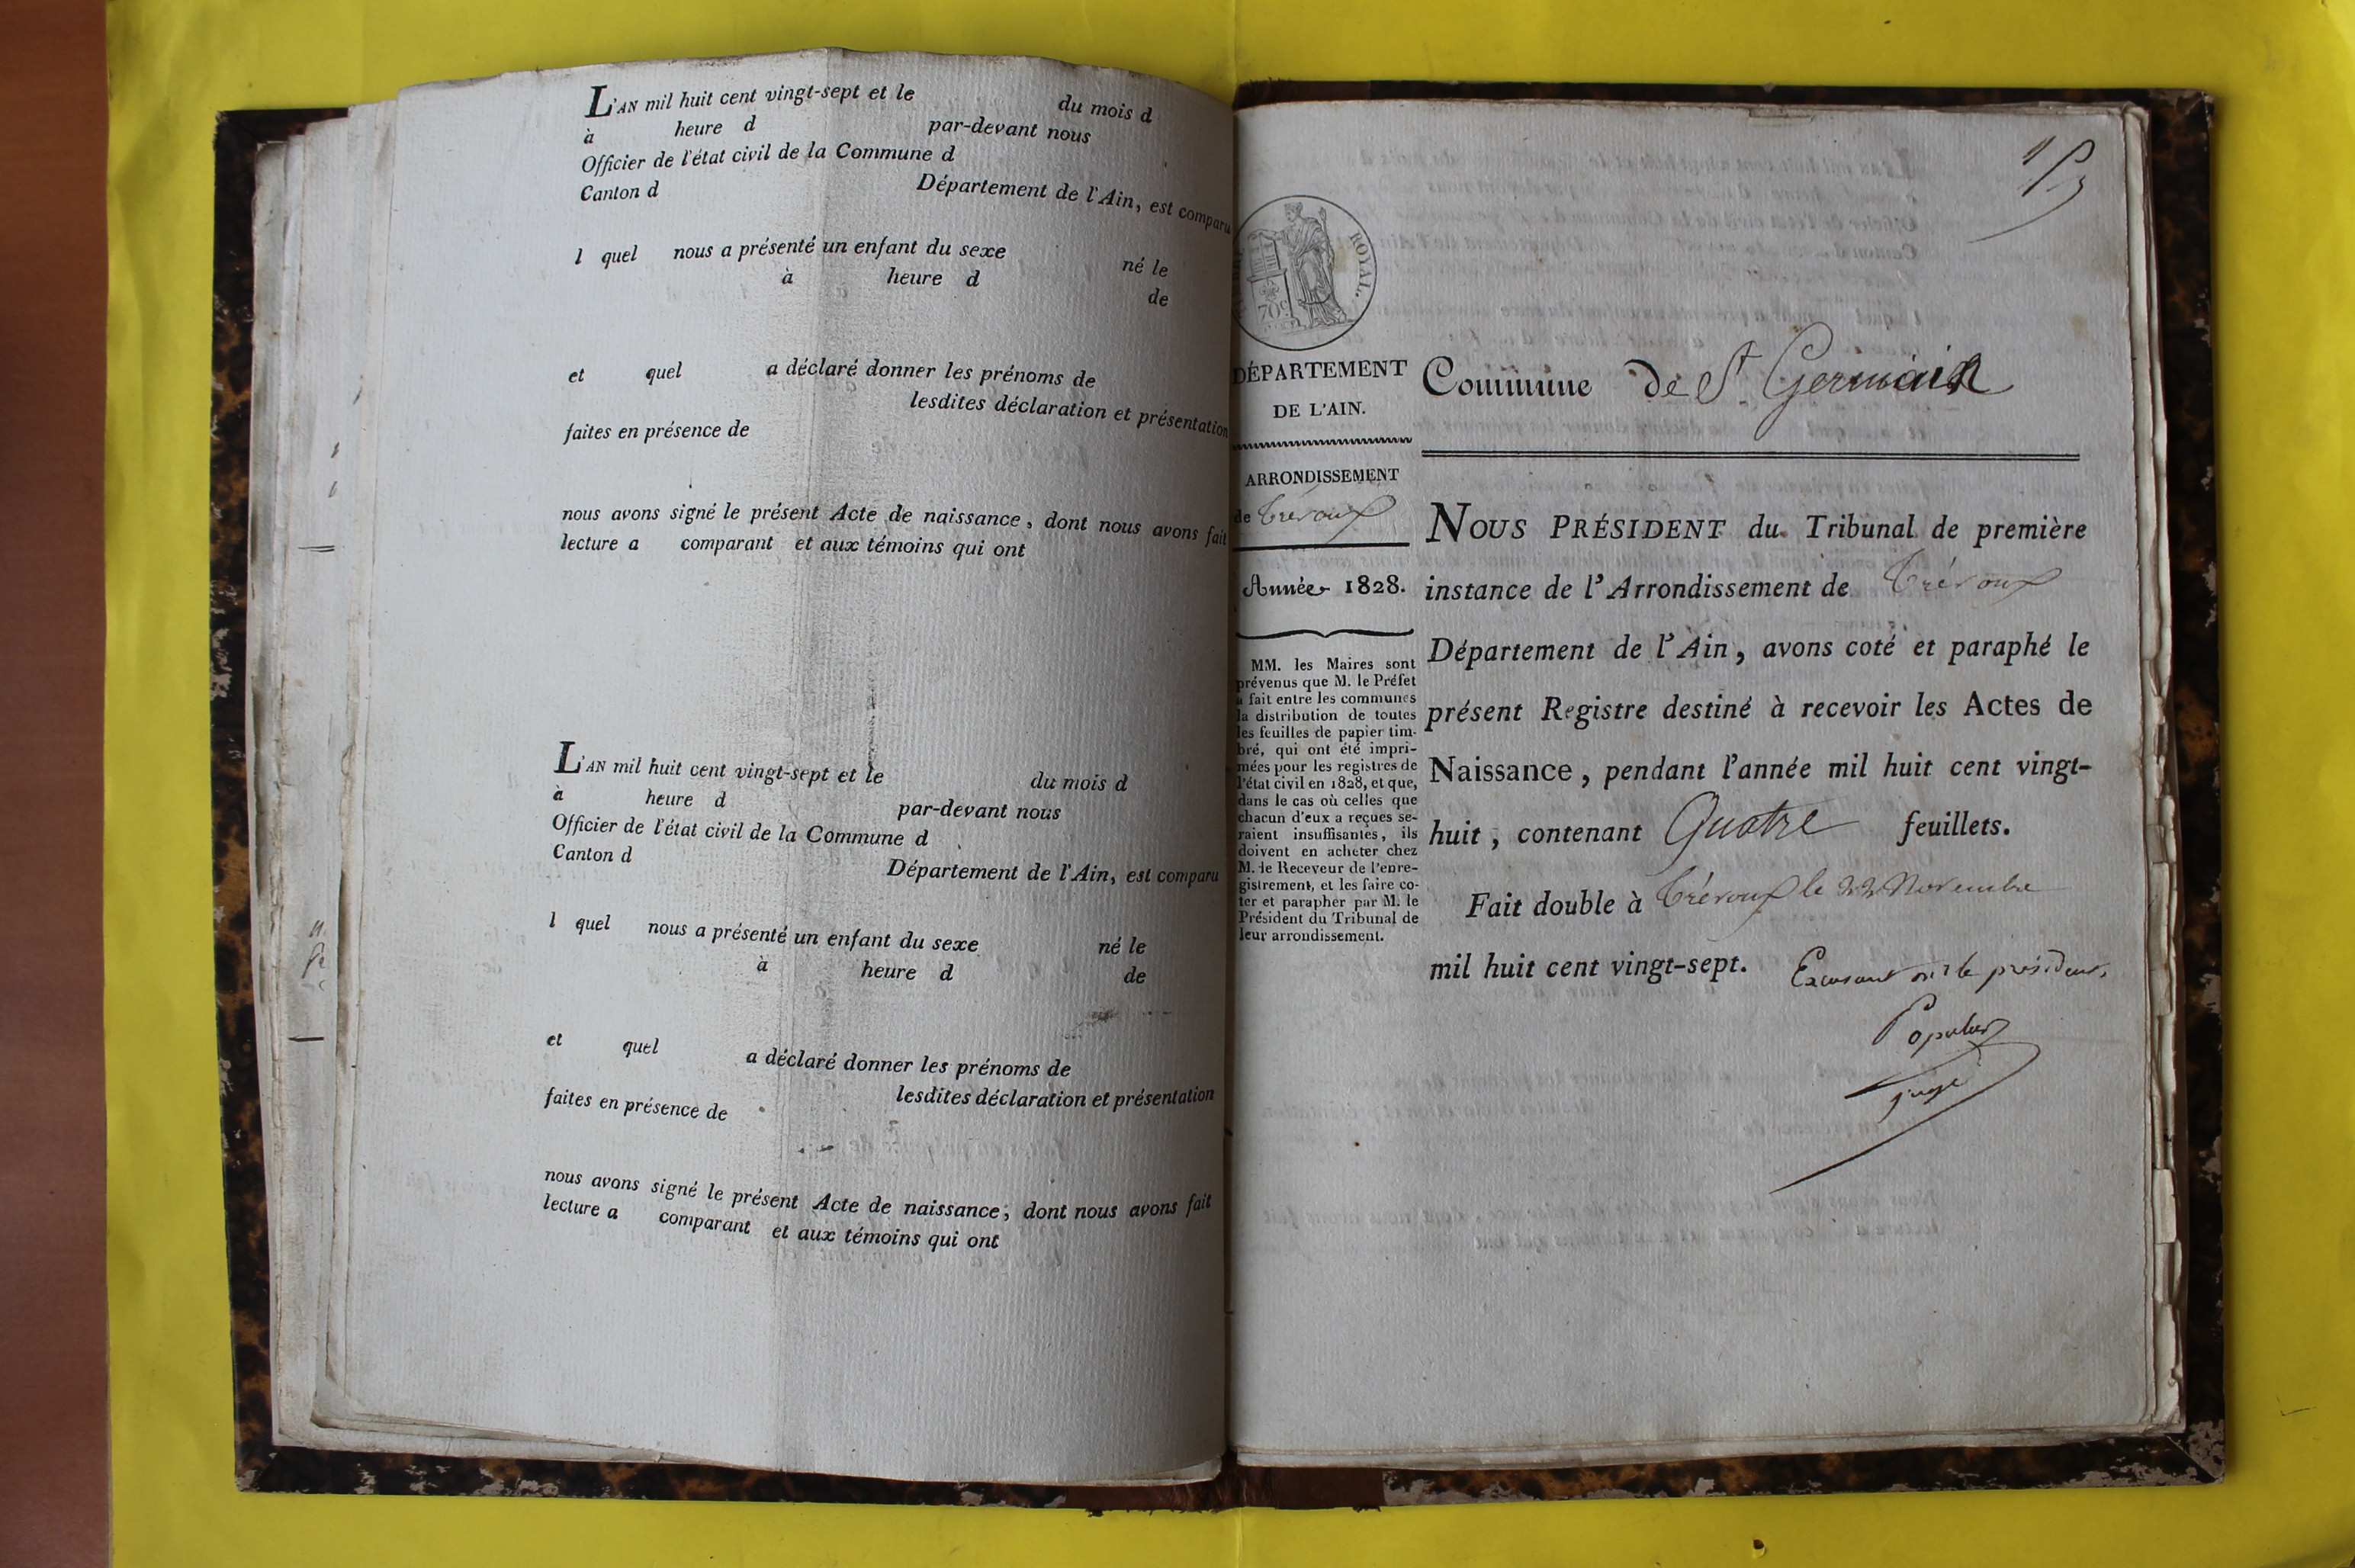 L'AN mil huit cent vingt-sept et le du mois d
à heure d par-devant nous
Officier de l'état civil de la Commune d
Canton d Département de l'Ain, est comparu
l quel nous a présenté un enfant du sexe né le
à heure d de
et quel a déclaré donner les prénoms de
lesdites déclaration et présentation
faites en présence de
nous avons signé le présent Acte de naissance, dont nous avons fait
lecture a comparant et aux témoins qui ont
L'AN mil huit cent vingt-sept et le du mois d
à heure d par-devant nous
Officier de l'état civil de la Commune d
Canton d Département de l'Ain, est comparu
l quel nous a présenté un enfant du sexe né le
à heure d de
et quel a déclaré donner les prénoms de
lesdites déclaration et présentation
faites en présence de
nous avons signé le présent Acte de naissance, dont nous avons fait
lecture a comparant et aux témoins qui ont
ROYAL.
70c
DÉPARTEMENT
DE L'AIN.
ARRONDISSEMENT
de Trévoux
Année 1828.
MM. les Maires sont
prévenus que M. le Préfet
a fait entre les communes
la distribution de toutes
les feuilles de papier tim-
bré, qui ont été impri-
mées pour les registres de
l'état civil en 1828, et que,
dans le cas où celles que
chacun d'eux a reçues se-
raient insuffisantes, ils
doivent en acheter chez
M. le Receveur de l'enre-
gistrement, et les faire co-
ter et parapher par M. le
Président du Tribunal de
leur arrondissement.
Commune de St. Germain
NOUS PRÉSIDENT du Tribunal de première
instance de l'Arrondissement de Trévoux
Département de l'Ain, avons coté et paraphé le
présent Registre destiné à recevoir les Actes de
Naissance, pendant l'année mil huit cent vingt-
huit, contenant Quatre feuillets.
Fait double à Trévoux le 22 Novembre
mil huit cent vingt-sept. le président,
juge